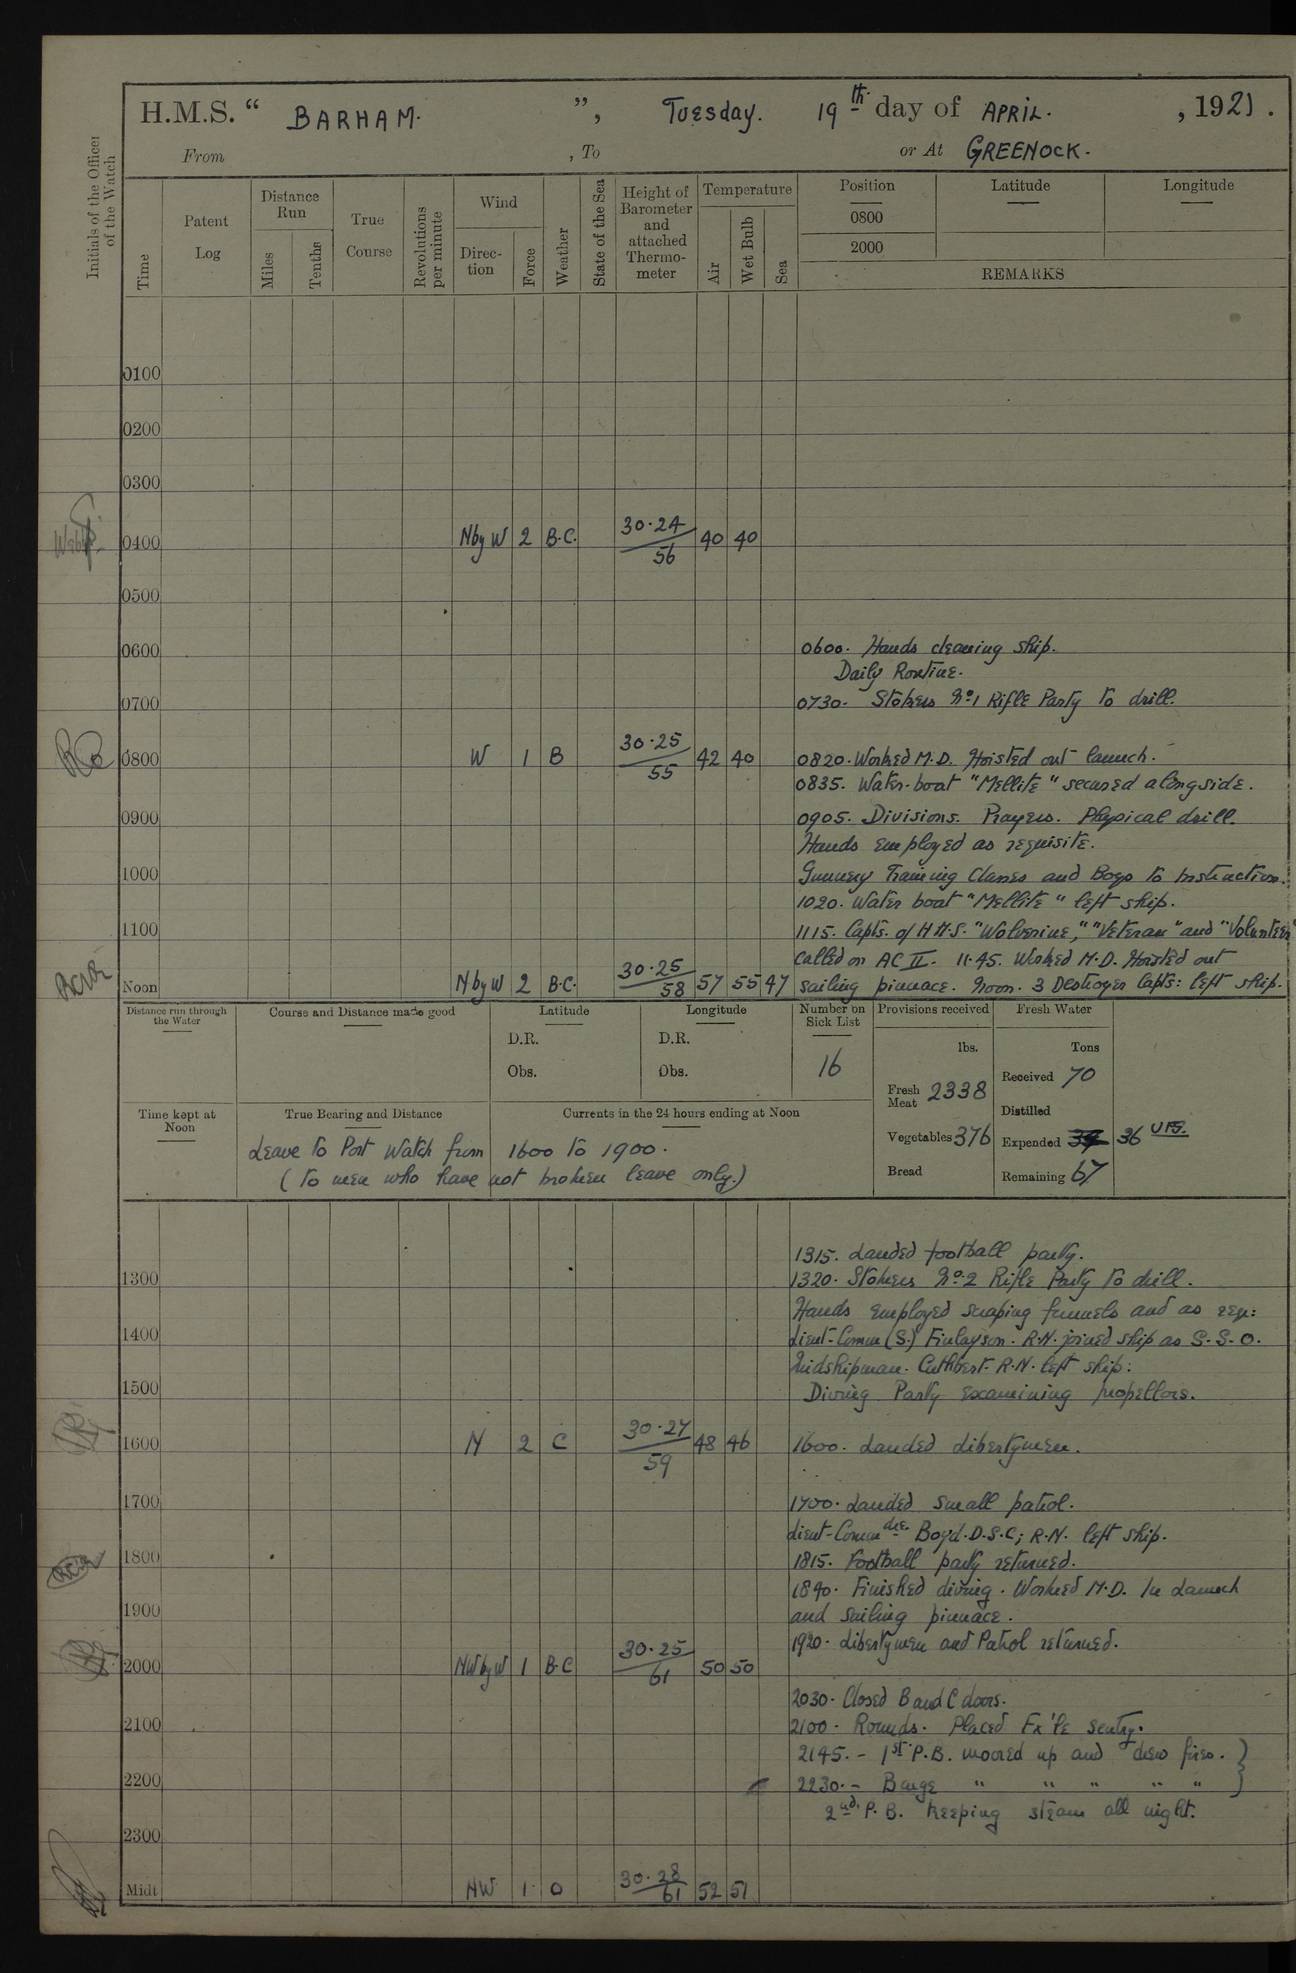 H.M.S. “ BARHAM. ”, Tuesday. 19th day of APRIL. , 1921.
From , To or At GREENOCK.
Initials of the Officer of the Watch
Time
Patent Log
Distance Run
Miles
Tenths
True Course
Revolutions per minute
Wind
Direction
Force
Weather
State of the Sea
Height of Barometer and attached Thermometer
Temperature
Air
Wet Bulb
Sea
Position
0800
2000
Latitude
Longitude
REMARKS
0100
0200
0300
0400 N by W 2 B.C. 30.24 56 40 40
0500
0600 0600. Hands cleaning ship.
Daily Routine.
0700 0730. Stokers No. 1 Rifle Party to drill.
0800 W 1 B 30.25 55 42 40 0820. Worked M.D. Hoisted out launch.
0835. Water-boat "Mellite" secured alongside.
0900 0905. Divisions. Prayers. Physical drill.
Hands employed as requisite.
1000 Gunnery Training Classes and Boys to Instruction.
1020. Water boat "Mellite" left ship.
1100 1115. Capts. of H.M.S. "Wolverine," "Veteran" and "Volunteer"
called on AC II. 11.45. Worked M.D. Hoisted out
Noon N by W 2 B.C. 30.25 58 57 55 47 sailing pinnace. Noon. 3 Destroyer Capts: left ship.
Distance run through the Water
Course and Distance made good
Latitude
D.R.
Obs.
Longitude
D.R.
Obs.
Number on Sick List
16
Provisions received
lbs.
Fresh Meat 2338
Vegetables 376
Bread
Fresh Water
Tons
Received 70
Distilled
Expended 36
Remaining 67
Time kept at Noon
True Bearing and Distance
Currents in the 24 hours ending at Noon
Leave to Port Watch from 1600 to 1900.
(To men who have not broken leave only.)
1315. Landed football party.
1300 1320. Stokers No. 2 Rifle Party to drill.
Hands employed scraping funnels and as req:
1400 Lieut-Comm (S.) Finlayson. R.N. joined ship as S.S.O.
Midshipman. Cuthbert. R.N. left ship:
1500 Diving Party examining propellors.
1600 N 2 C 30.27 59 48 46 1600. Landed libertymen.
1700 1700. Landed small patrol.
Lieut-Commdre. Boyd. D.S.C; R.N. left ship.
1800 1815. Football party returned.
1840. Finished diving. Worked M.D. In Launch
1900 and sailing pinnace.
1920. Libertymen and Patrol returned.
2000 NW by W 1 B.C 30.25 61 50 50
2030. Closed B and C doors.
2100 2100. Rounds. Placed Fx'le sentry.
2145. - 1st P.B. moored up and drew fires.
2200 2230. - Barge " " " " "
2nd P.B. keeping steam all night.
2300
Midt NW 1 O 30.28 61 52 51